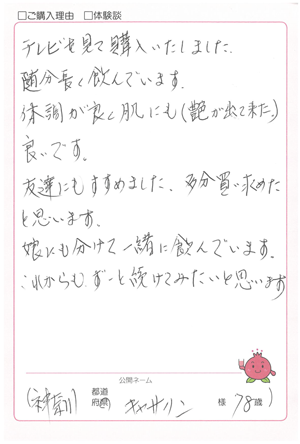 □ご購入理由 □体験談
テレビを見て購入いたしました。
随分長く飲んでいます。
体調が良く肌にも(艶が出て来た。)
良いです。
友達にもすすめました。多分買い求めた
と思います。
娘にも分けて一緒に飲んでいます。
これからもずーと続けてみたいと思います
公開ネーム
(神奈川 都道府県 キャサリン 様 78歳)